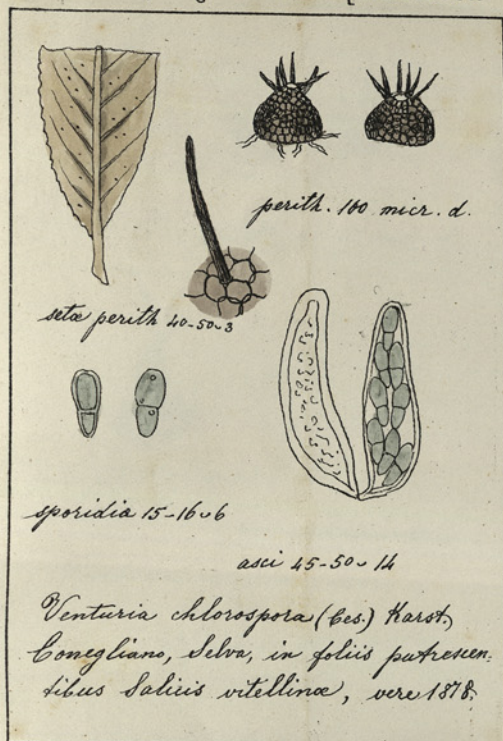 perith. 160 micr. d.
setæ perith 40-50⌣3
sporidia 15-16⌣6
asci 45-50⌣14
Venturia chlorospora (Ces.) Karst,
Conegliano, Selva, in foliis putrescen-
tibus Salicis vitellinæ, vere 1878.